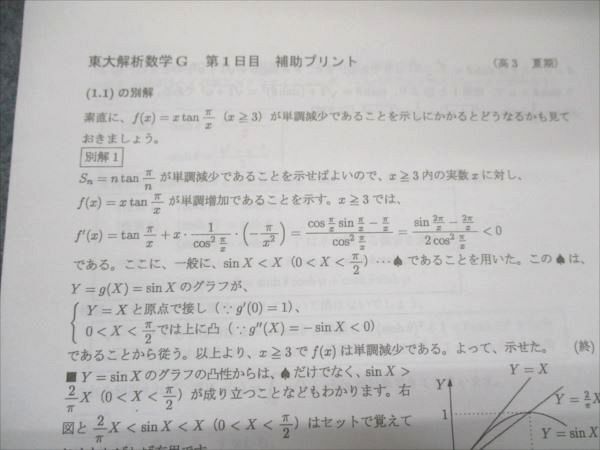 東大解析数学G　第1日目　補助プリント　（高3　夏期）
(1.1) の別解
素直に、f(x) = x tan π/x (x ≧ 3) が単調減少であることを示しにかかるとどうなるかも見て
おきましょう。
別解1
S_n = n tan π/n が単調減少であることを示せばよいので、x ≧ 3 内の実数 x に対し、
f(x) = x tan π/x が単調増加であることを示す。x ≧ 3 では、
f'(x) = tan π/x + x · 1/(cos² π/x) · (−π/x²) = (cos π/x sin π/x − π/x)/(cos² π/x) = (sin 2π/x − 2π/x)/(2 cos² π/x) < 0
である。ここに、一般に、sin X < X (0 < X < π/2) ⋯ ♠ であることを用いた。この ♠ は、
Y = g(X) = sin X のグラフが、
Y = X と原点で接し (∵ g'(0) = 1)、
0 < X < π/2 では上に凸 (∵ g''(X) = − sin X < 0)
であることから従う。以上より、x ≧ 3 で f(x) は単調減少である。よって、示せた。　（終）
■ Y = sin X のグラフの凸性からは、♠ だけでなく、sin X >
2/π X (0 < X < π/2) が成り立つことなどもわかります。右
図と 2/π X < sin X < X (0 < X < π/2) はセットで覚えて
Y
Y = X
Y = 2/π X
1
Y = sin X